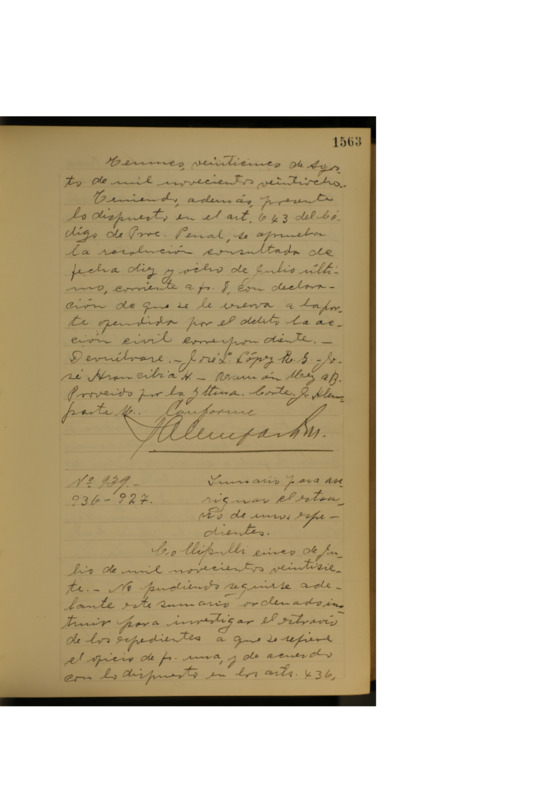 1563
Temuco, veinticinco de Agos-
to de mil novecientos veintiocho.
Teniendo, además, presente
lo dispuesto en el art. 643 del Có-
digo de Proc. Penal, se aprueba
la resolución consultada de
fecha diez y ocho de Julio últi-
mo, corriente a fs. 8, con declara-
ción de que se le reserva a la par-
te ofendida por el delito la ac-
ción civil correspondiente.-
Devuélvase.- José L. López R. G.- Jo-
sé Arancibia A.- Román B.
Proveído por la Iltma. Corte, J. Alem-
parte M. Conforme
J Alemparte M.
Nº 979.-
936-927.
Sumario para ave
riguar el extra-
vío de unos expe-
dientes.
Collipulli cinco de Ju-
lio de mil novecientos veintisie-
te.- No pudiendo seguirse ade-
lante este sumario ordenado ins
truir para investigar el extravío
de los expedientes a que se refiere
el oficio de fs. una, y de acuerdo
con lo dispuesto en los arts. 436,